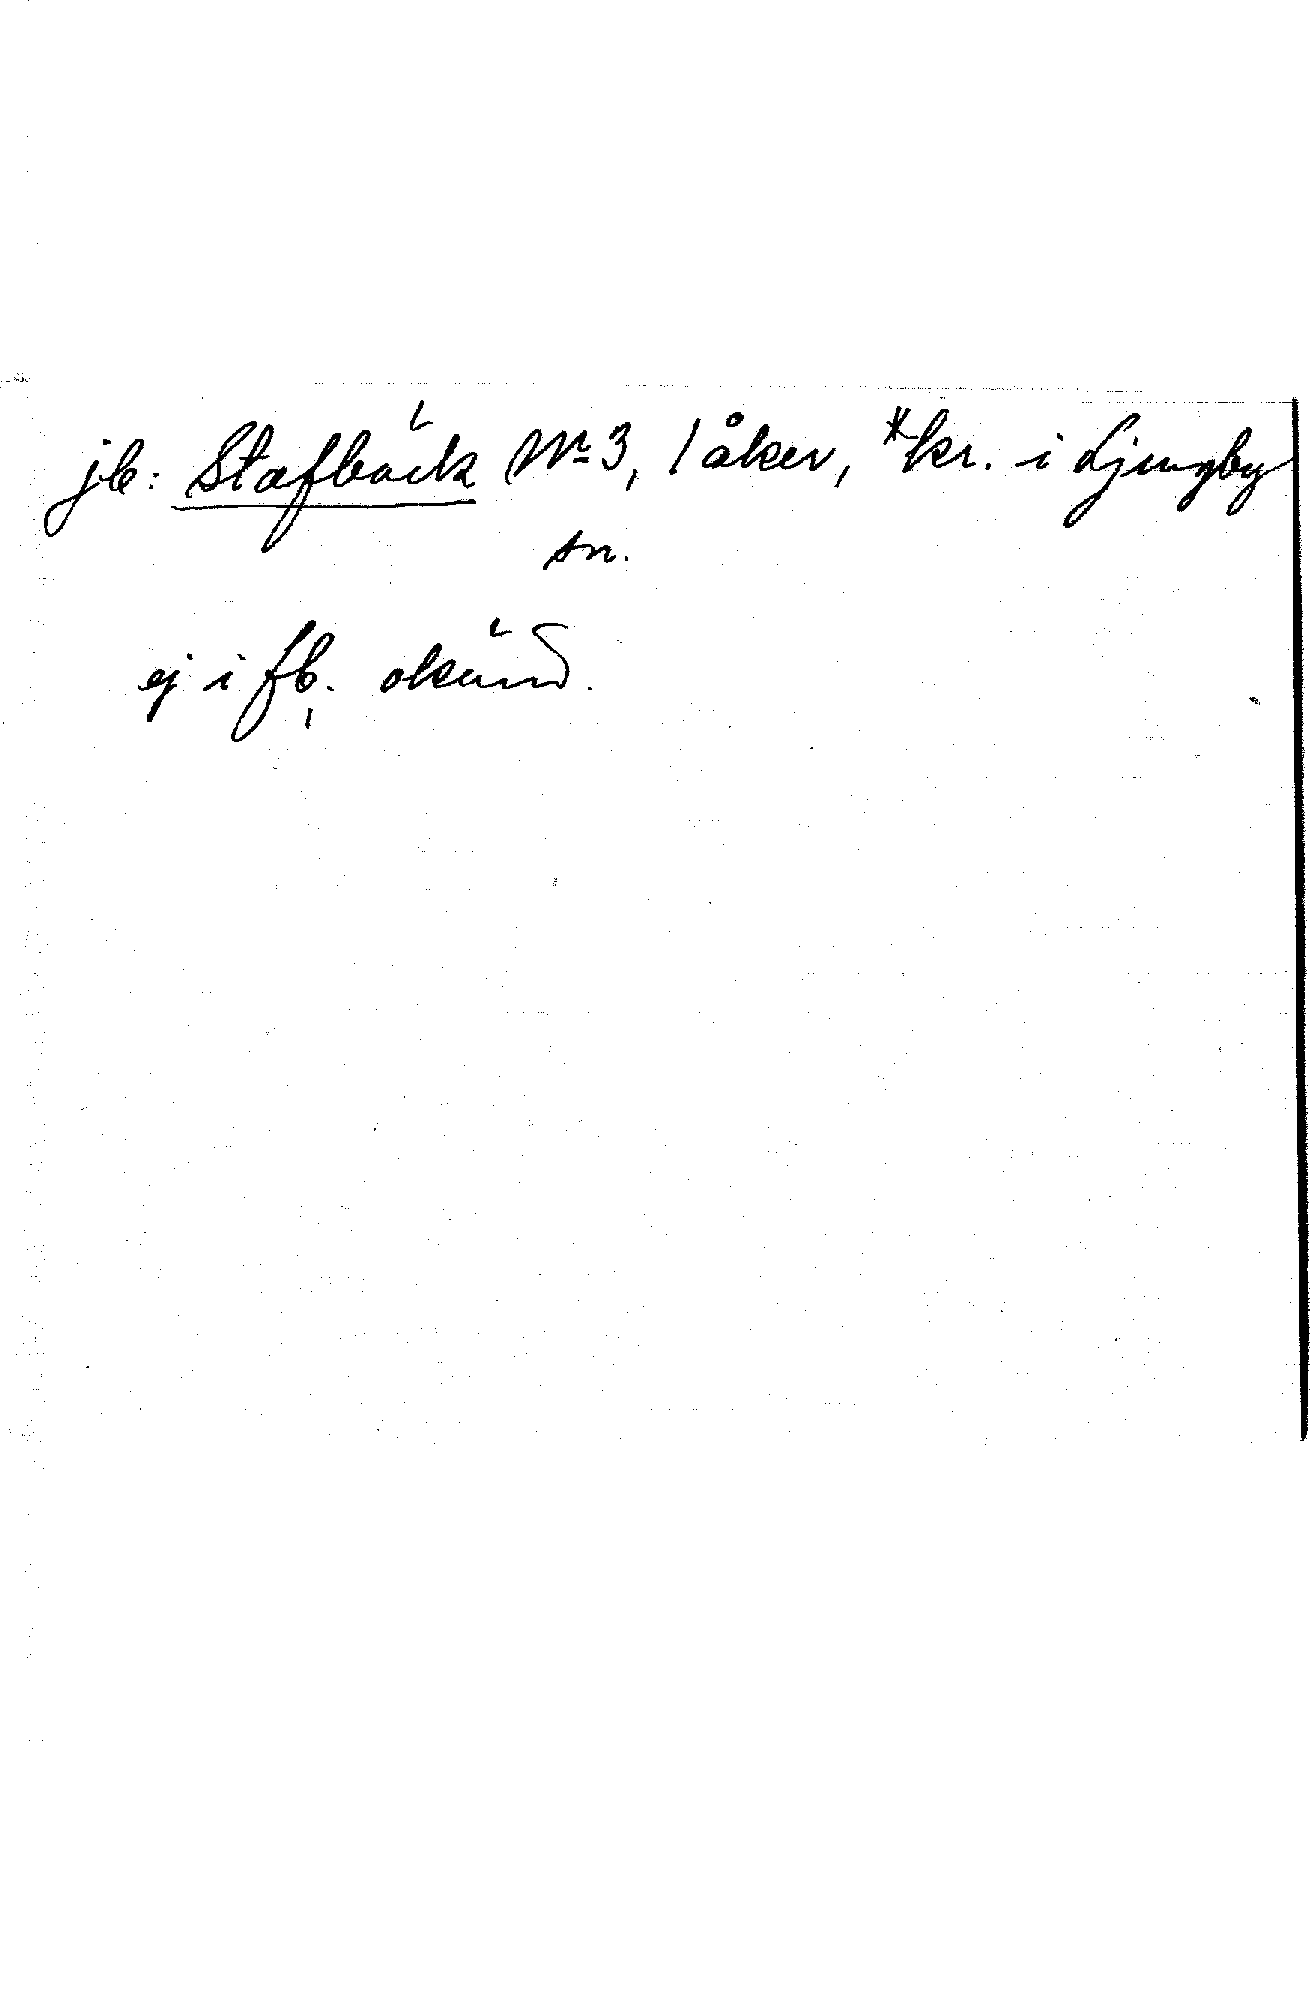 jb: Stafbäck № 3, 1 åker, *kr. i Ljungby
sn.
ej i fb. okänd.